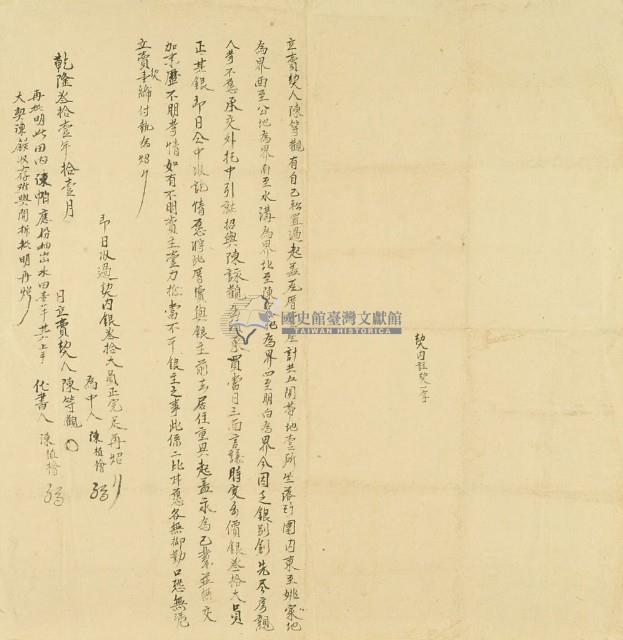 契內註契一字
立賣契人陳等觀有自己私置過起盖瓦厝 計共五間帶地壹所坐落 圍內東至姚家地
為界西至公地為界南至水溝為界北至陳 地為界四至明白為界今因乏銀別創先尽房親
人等不愿承交外托中引就招與陳 觀 承買當日三面言議時 價銀叁拾大員
正其銀即日仝中收訖情愿將此厝 與銀主前去居住重興起盖永為己業並無交
加來歷不明等情如有不明賣主壹力抵當不干銀主之事此係二比甘愿各無抑勒口恐無憑
立賣契 付執為炤
即日收過契內銀叁拾大員正完足再炤
為中人 陳植檜
乾隆叁拾壹年拾壹月 日立賣契人陳等觀
代書人 陳植檜
再批明此田內陳 應份抽出水田
大契陳 收存 批明再炤
國史館臺灣文獻館
TAIWAN HISTORICA